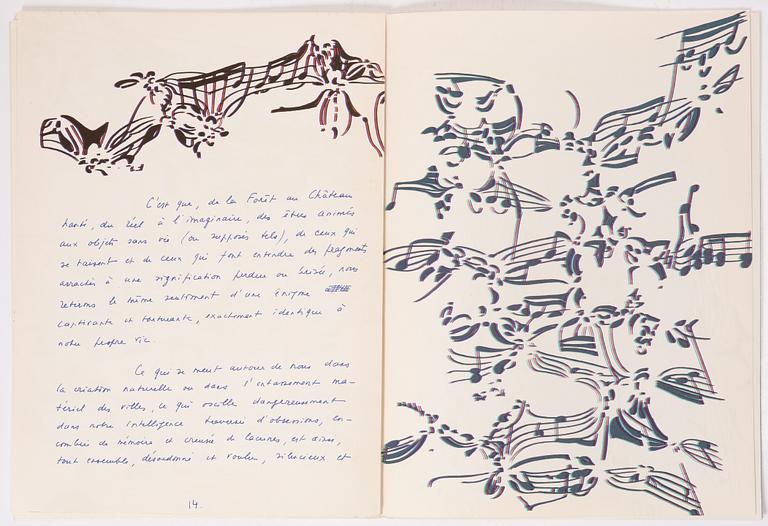 C'est que, de la Forêt au Château
hanté, du réel à l'imaginaire, des êtres animés
aux objets sans vie (ou supposés tels), de ceux qui
se taisent et de ceux qui font entendre des fragments
arrachés à une signification perdue ou brisée, nous
retirons le même sentiment d'une énigme
captivante et torturante, exactement identique à
notre propre vie.
Ce qui se meut autour de nous dans
la création naturelle ou dans l'entassement ma-
tériel des villes, ce qui oscille dangereusement
dans notre intelligence traversée d'obsessions, en-
combrée de mémoire et creusée de lacunes, est ainsi,
tout ensemble, désordonné et voulu, silencieux et
14.